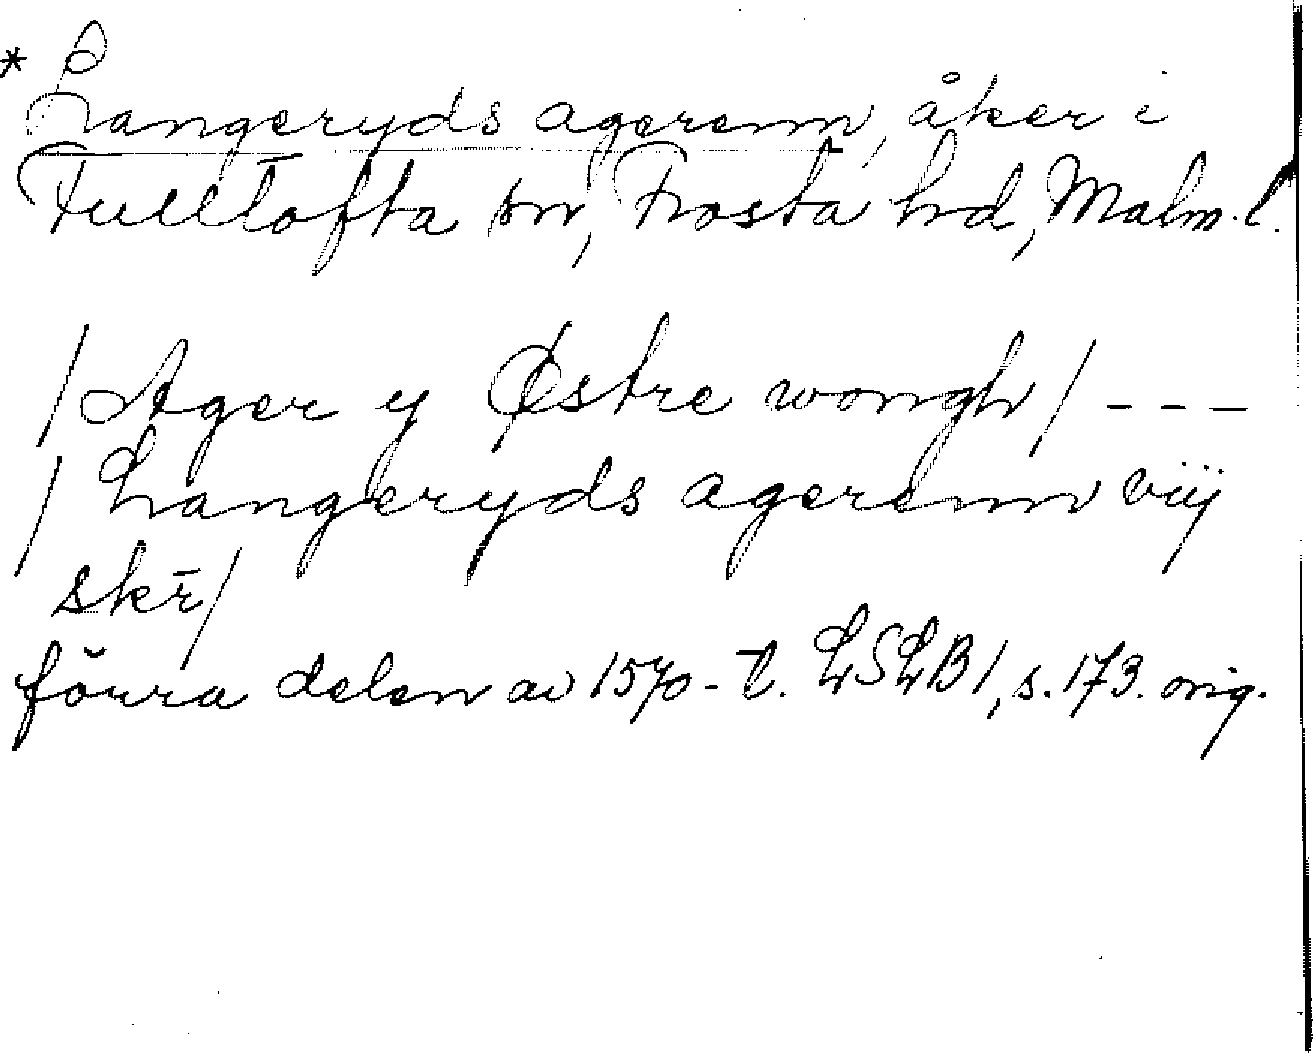 * Langeryds agerenn, åker i
Fulltofta sn, Frosta hd, Malm.l.
/Ager y Østre wongh/ ---
/ Langeryds agerenn viij
skr̄/
förra delen av 1570-t. LSLB1, s.173. orig.